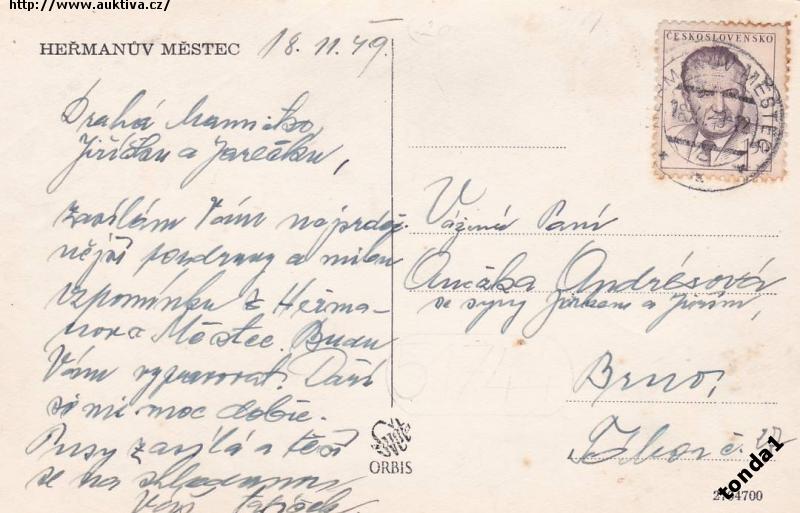 http://www.auktiva.cz/
HEŘMANŮV MĚSTEC 18.11.49.
Drahá Mamičko,
Jiříčku a Jarečku,
zasílám Vám nejsrdeč-
nější pozdravy a milou
vzpomínku z Heřma-
nova Městce. Budu
Vám vypravovat. Daří
se mi moc dobře.
Pusy zasílá a těší
se na shledanou
Váš
ČESKOSLOVENSKO
MĚSTEC
Vážená Paní
Andrésová
se syny Jarkem a Jiřím,
Brno,
ORBIS
2704700
tonda1